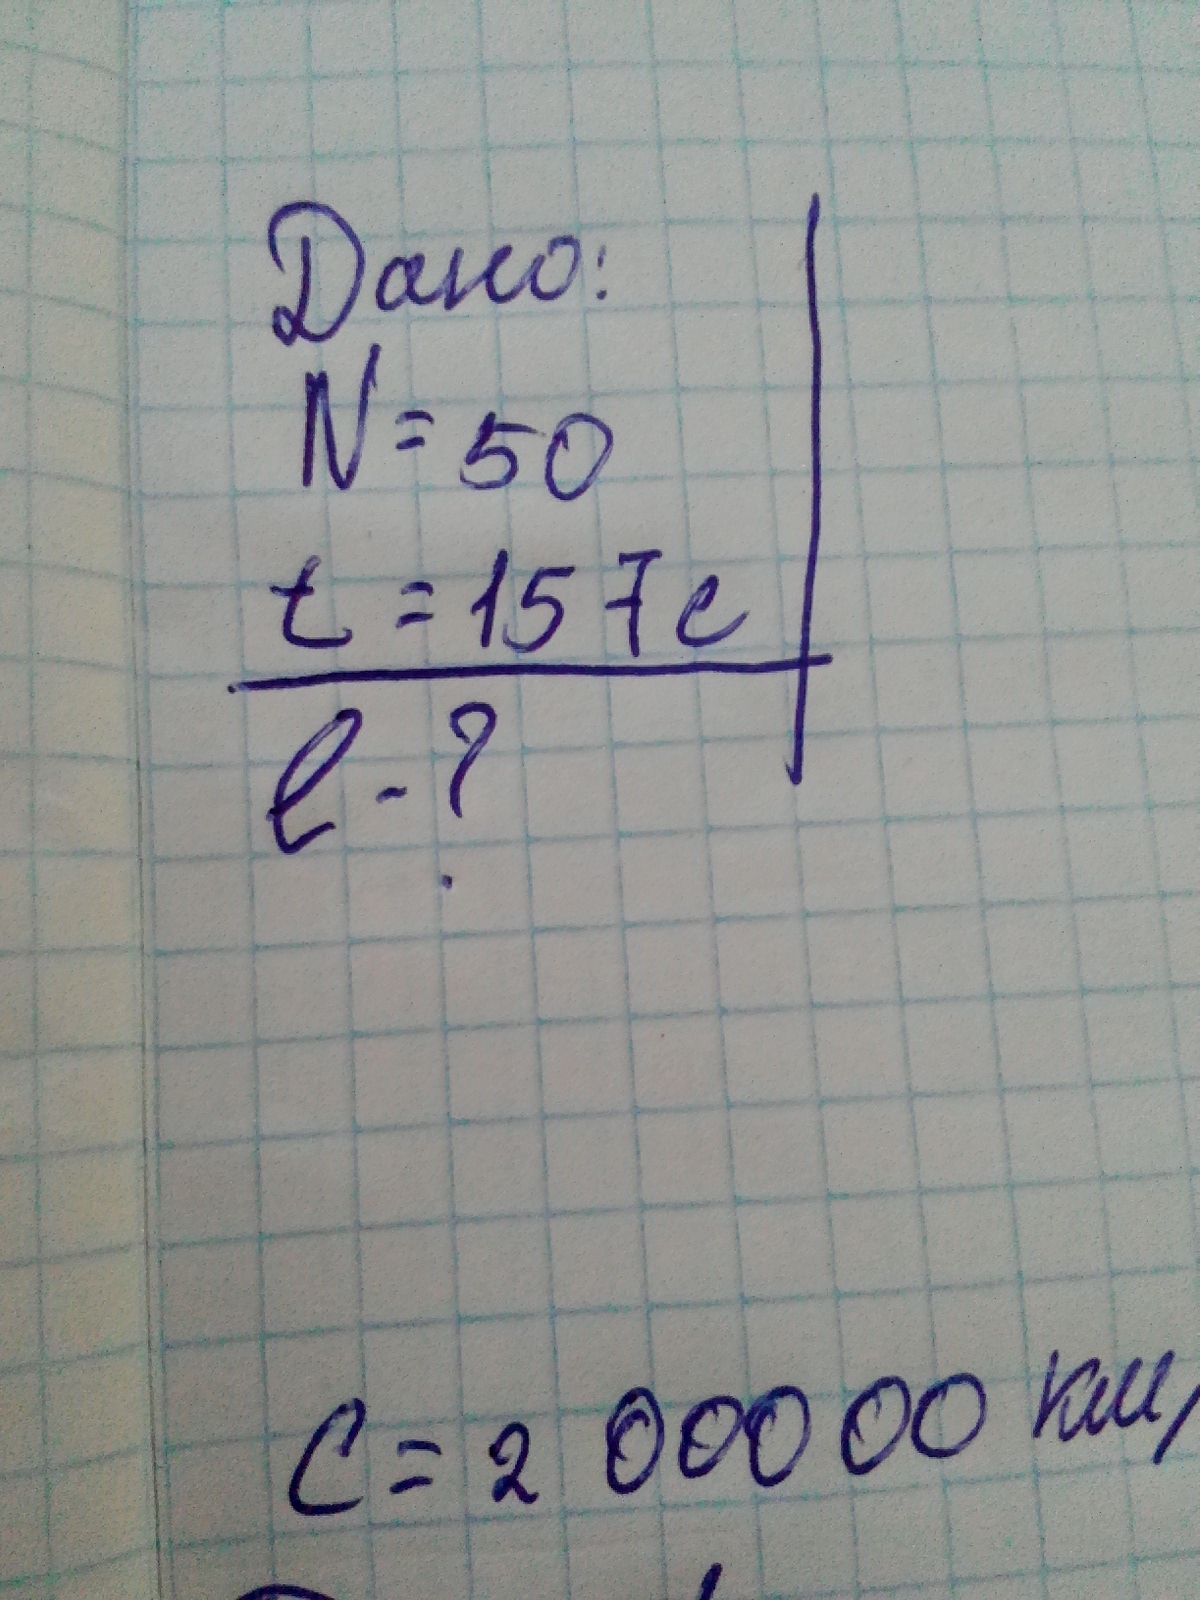 Дано:
N = 50
t = 157с
l - ?
C = 2 000 00 км/